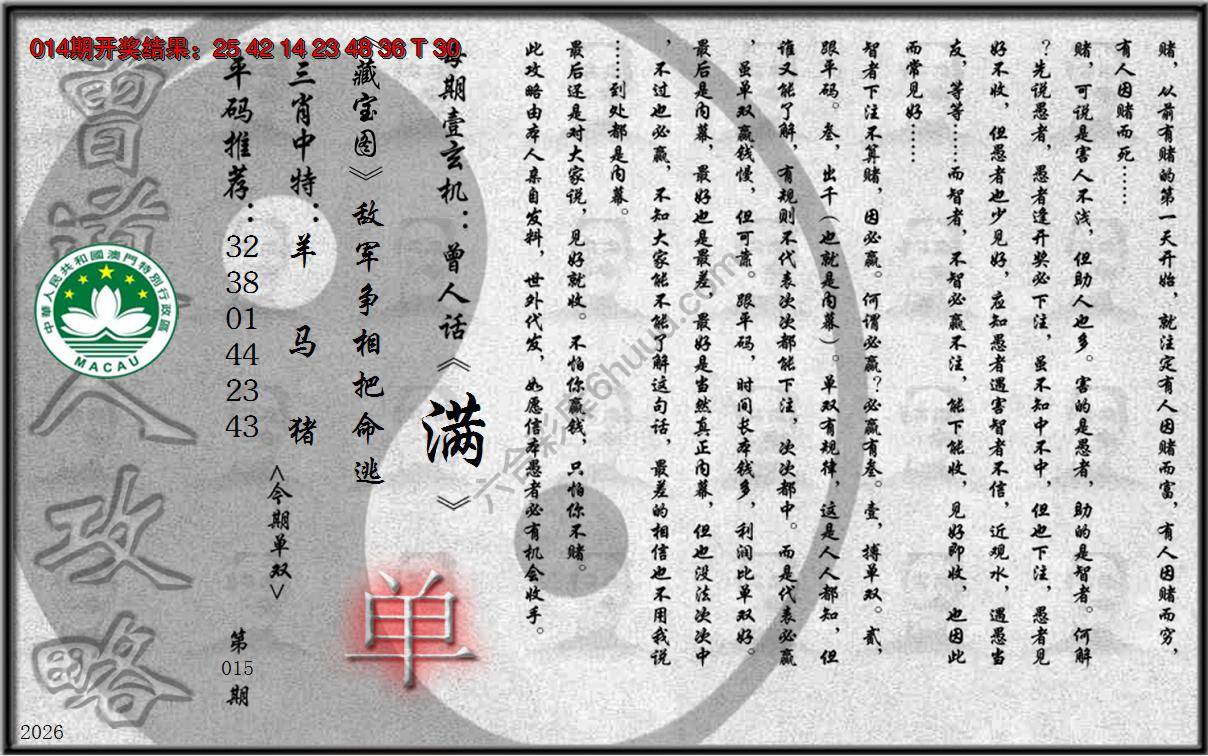 014期开奖结果：25 42 14 23 48 36 T 30
赌，从前有赌的第一天开始，就注定有人因赌而富，有人因赌而穷，
有人因赌而死……
赌，可说是害人不浅，但助人也多。害的是愚者，助的是智者。何解
？先说愚者，愚者逢开奖必下注，虽不知中不中，但也下注，愚者见
好不收，但愚者也少见好，应知愚者遇害智者不信，近观水，遇愚当
友，等等……而智者，不智必赢不注，能下能收，见好即收，也因此
而常见好……
智者下注不算赌，因必赢。何谓必赢？必赢有叁。壹，搏单双。贰，
跟平码。叁，出千（也就是内幕）。单双有规律，这是人人都知，但
谁又能了解，有规则不代表次次都能下注，次次都中。而是代表必赢
，虽单双赢钱慢，但可靠。跟平码，时间长本钱多，利润比单双好。
最后是内幕，最好也是最差，最好是当然真正内幕，但也没法次次中
，不过也必赢，不知大家能不能了解这句话，最差的相信也不用我说
……到处都是内幕。
最后还是对大家说，见好就收。不怕你赢钱，只怕你不赌。
此攻略由本人亲自发料，世外代发，如愿信本愚者必有机会收手。
每期壹玄机：曾人话《满》
《藏宝图》敌军争相把命逃
三肖中特：羊 马 猪
<今期单双>
单
平码推荐：32 38 01 44 23 43
第
015
期
曾道人攻略
中華人民共和國澳門特別行政區
MACAU
六合彩库6huuu.com
2026